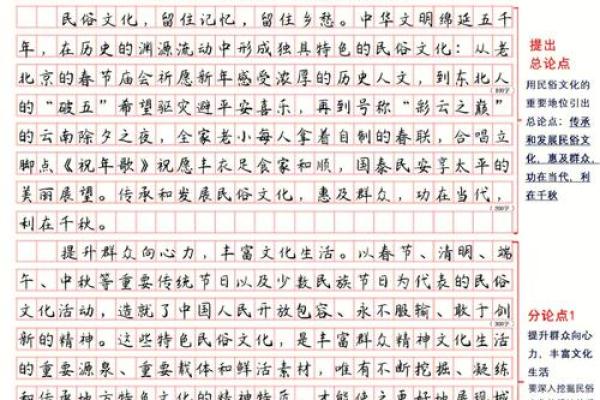 民俗文化，留住记忆，留住乡愁。中华文明绵延五千
年，在历史的渊源流动中形成独具特色的民俗文化：从老
北京的春节庙会祈愿新年感受浓厚的历史人文，到东北人
的“破五”希望驱灾避平安喜乐，再到号称“彩云之巅”
的云南除夕之夜，全家老小每人拿着自制的春联，合唱立
脚点《祝年歌》祝愿丰衣足食家和顺，国泰民安享太平的
美丽展望。传承和发展民俗文化，惠及群众，功在当代，
利在千秋。
提升群众向心力，丰富文化生活。以春节、清明、端
午、中秋等重要传统节日以及少数民族节日为代表的民俗
文化活动，造就了中国人民开放包容、永不服输、敢于创
新的精神。这些特色民俗文化，是丰富群众精神文化生活
的重要源泉、重要载体和鲜活素材，唯有不断挖掘、凝练
和传承地方特色文化的精神特质，才能使之更好地展现城
提出
总论点
用民俗文化的
重要地位引出
总论点：传承
和发展民俗文
化，惠及群众，
功在当代，利
在千秋
分论点1
提升群众向心
力，丰富文化
生活
要深入挖掘民俗